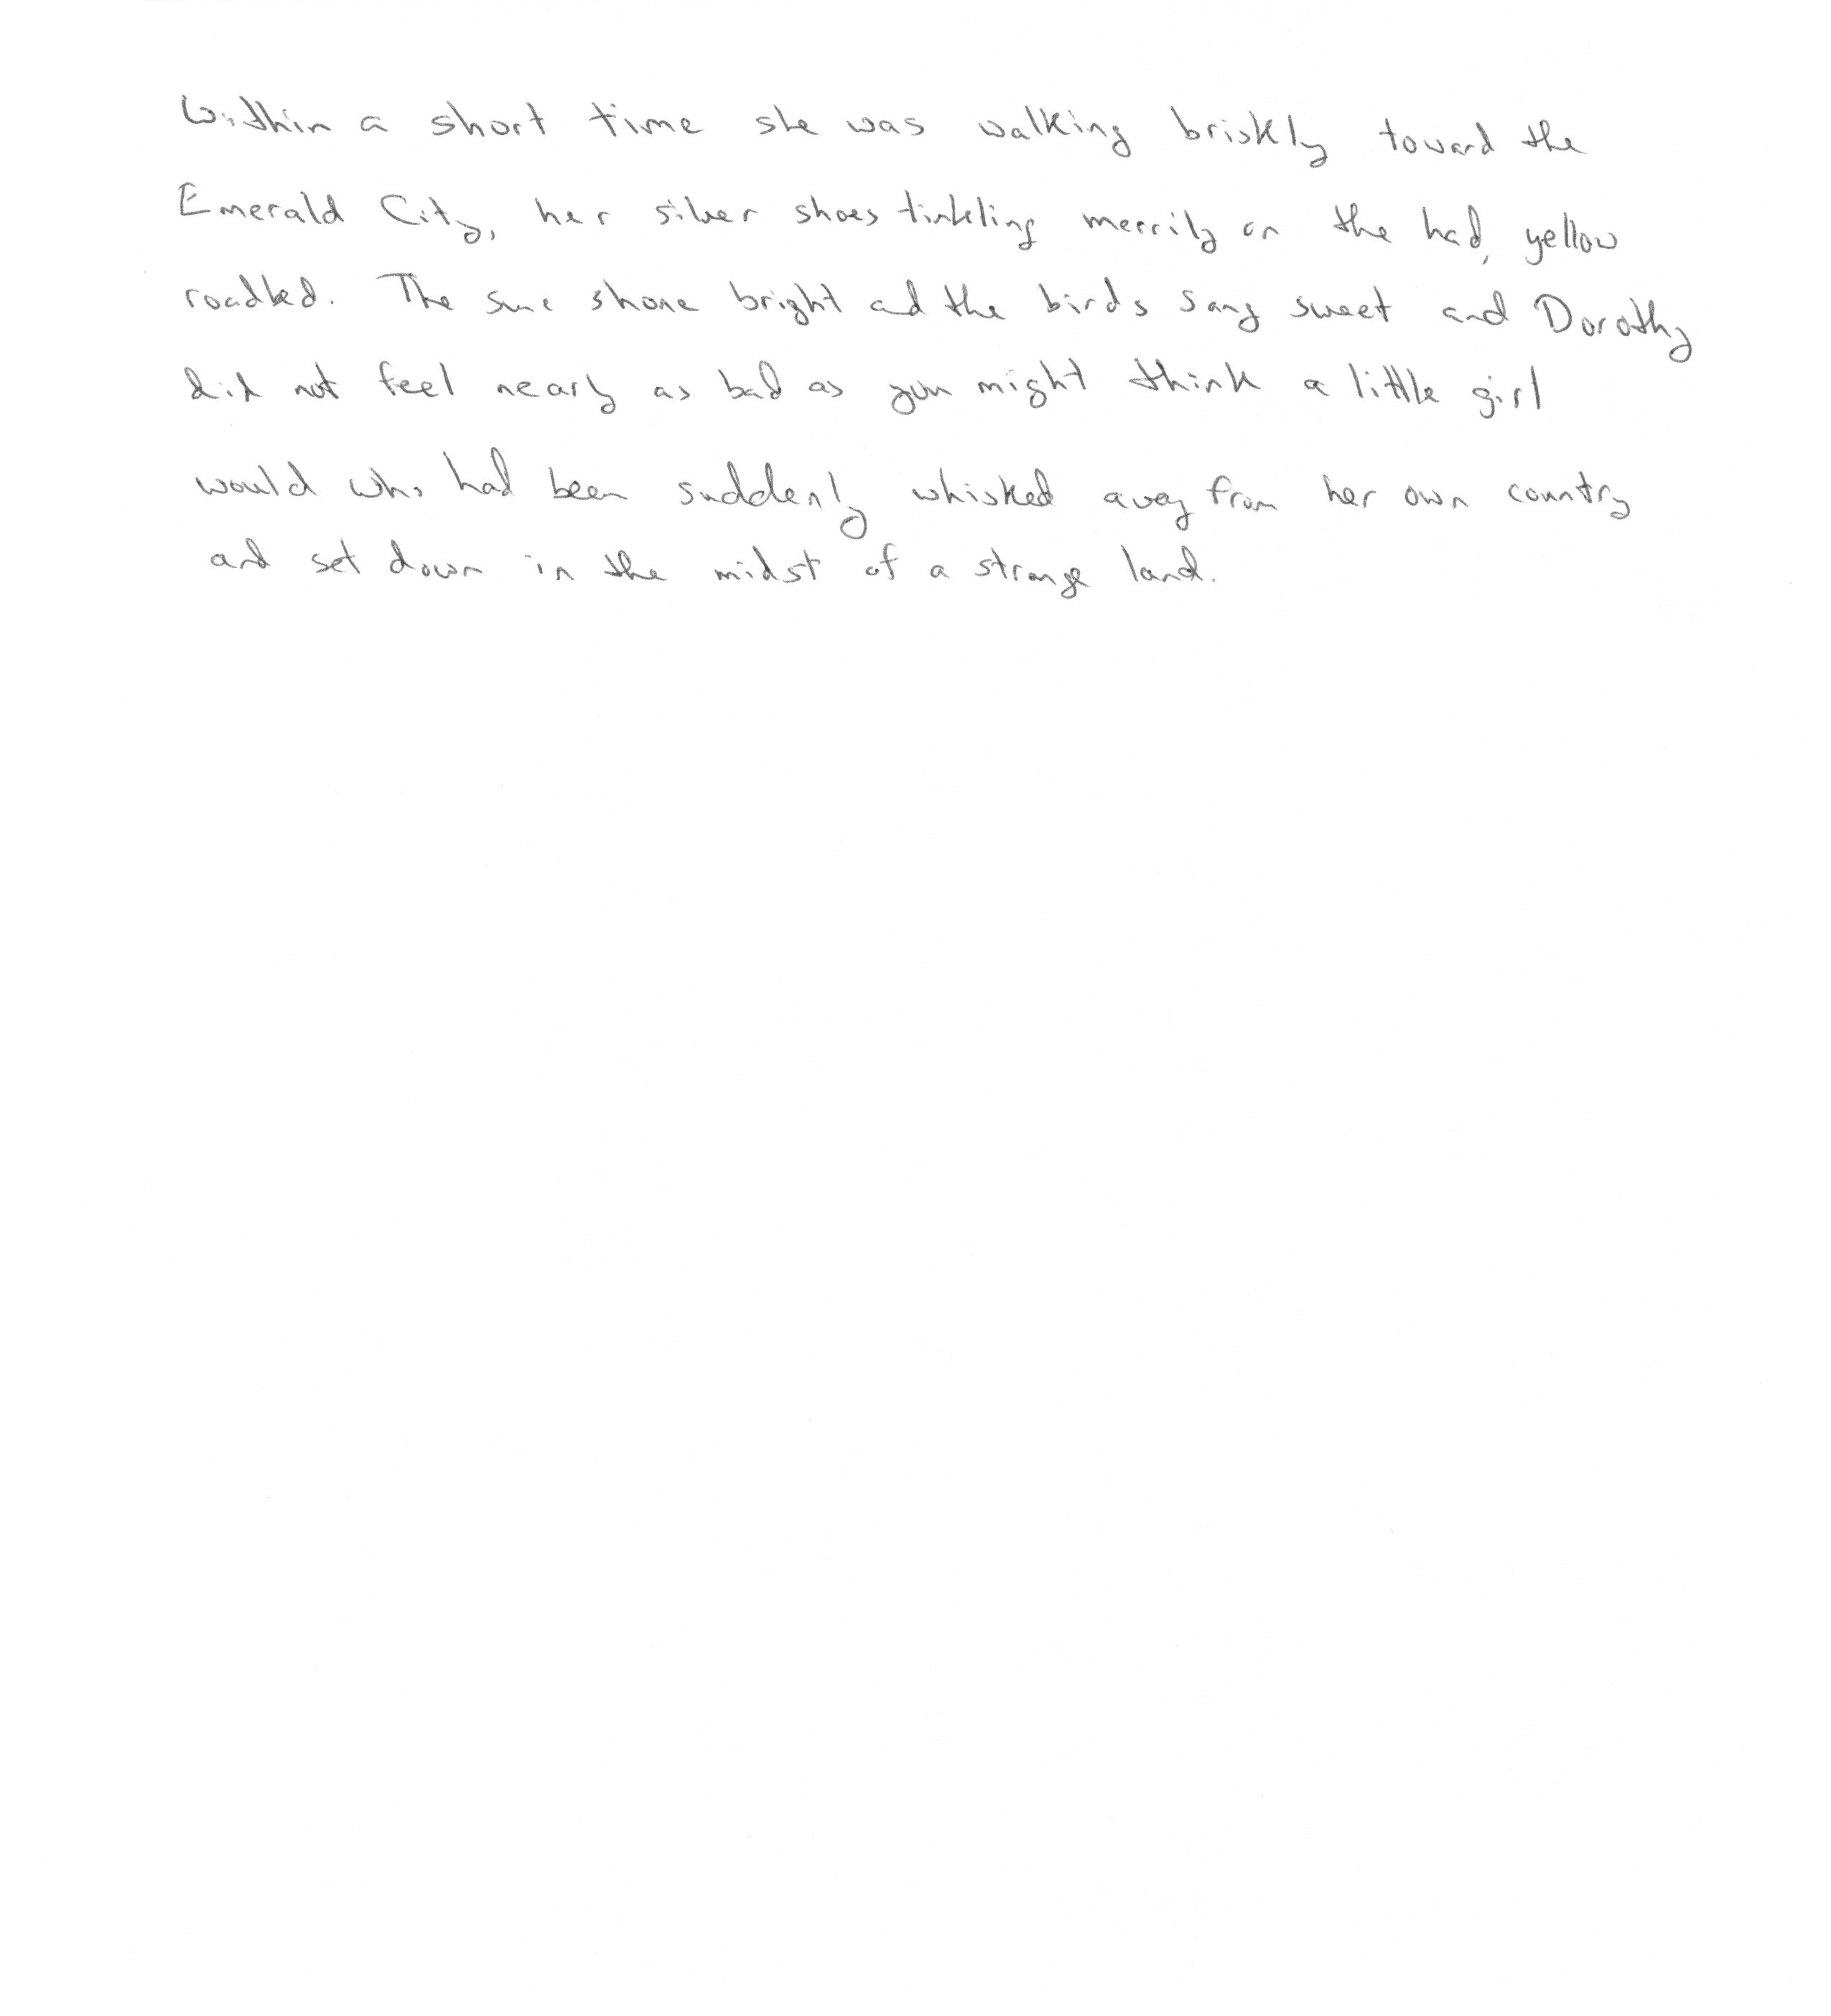 Within a short time she was walking briskly toward the
Emerald City, her silver shoes tinkling merrily on the had, yellow
roadbed. The sun shone bright ad the birds sang sweet and Dorothy
did not feel nearly as bad as you might think a little girl
would who had been suddenly whisked away from her own country
and set down in the midst of a strange land.